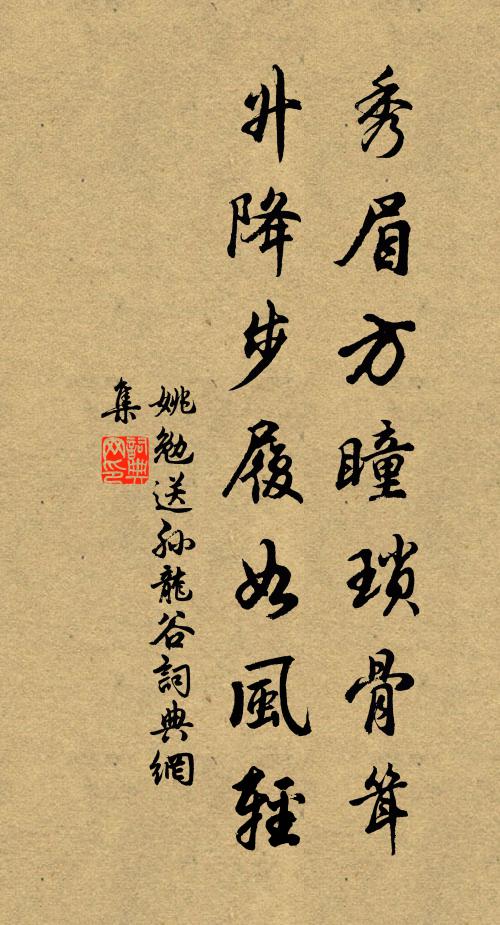 秀眉方瞳瑣骨聳
升降步履如風輕
姚勉送孙龍谷詞典網
集
詞典
网印